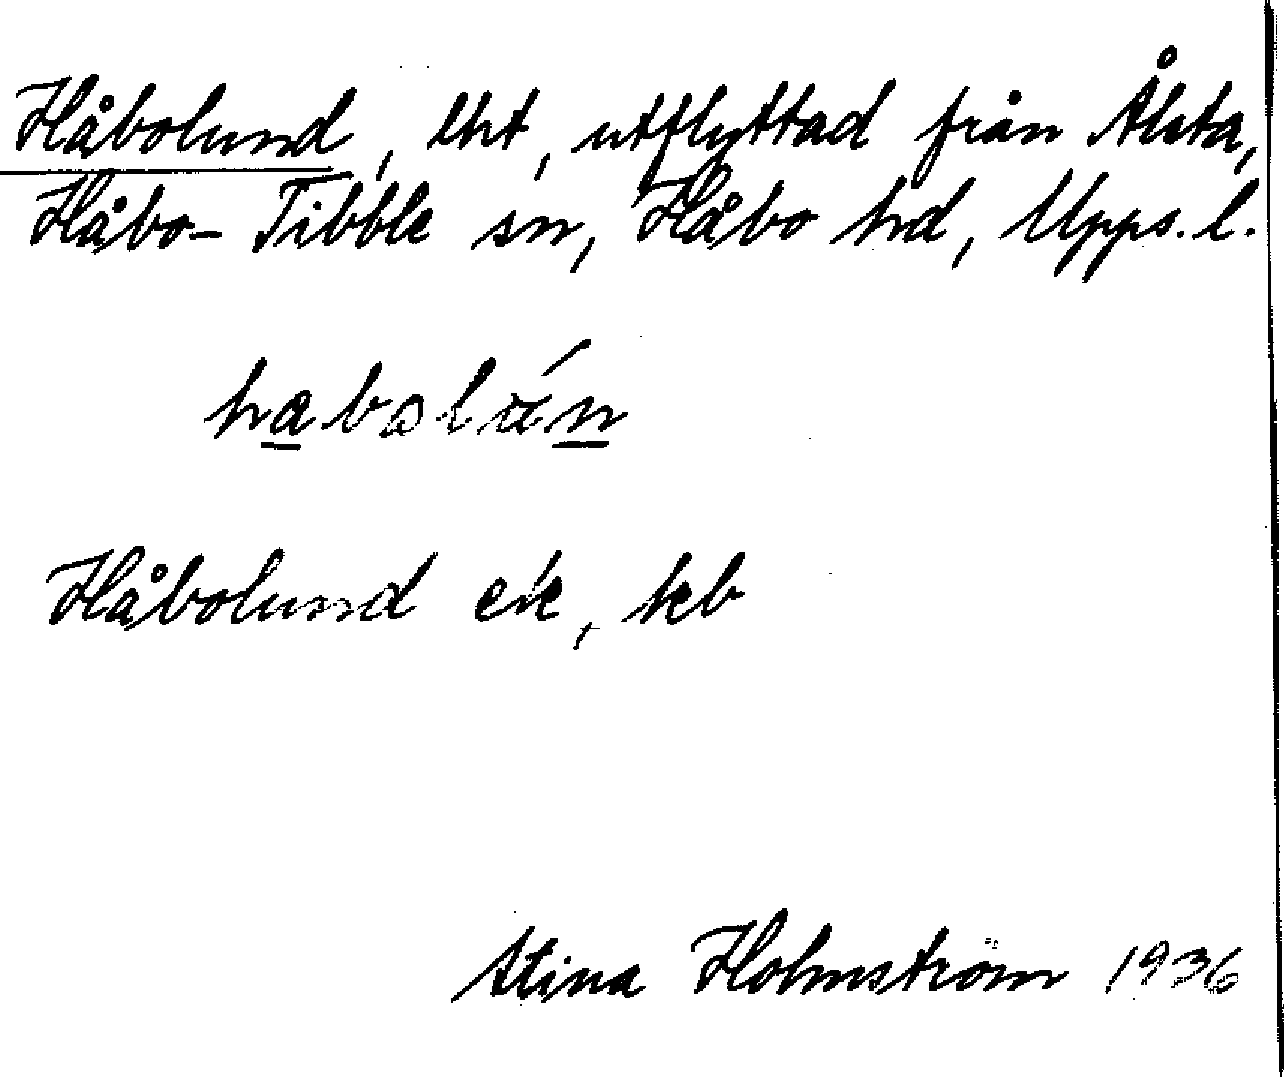 Håbolund, lht, utflyttad från Ålsta,
Håbo-Tibble sn, Håbo hd, Upps. l.
Håbolund ek, kb
Stina Holmström 1936